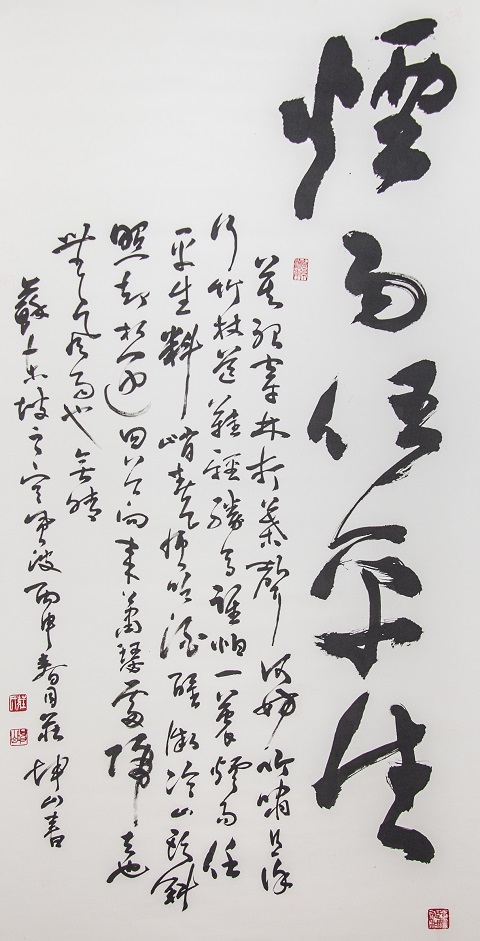 煙雨任平生
莫聽穿林打葉聲何妨吟嘯且徐
行竹杖芒鞋輕勝馬誰怕一蓑煙雨任
平生料峭春風吹酒醒微冷山頭斜
照却相迎回首向來蕭瑟處歸去也
無風雨也無晴
蘇東坡之定風波丙申春月莊坤山書